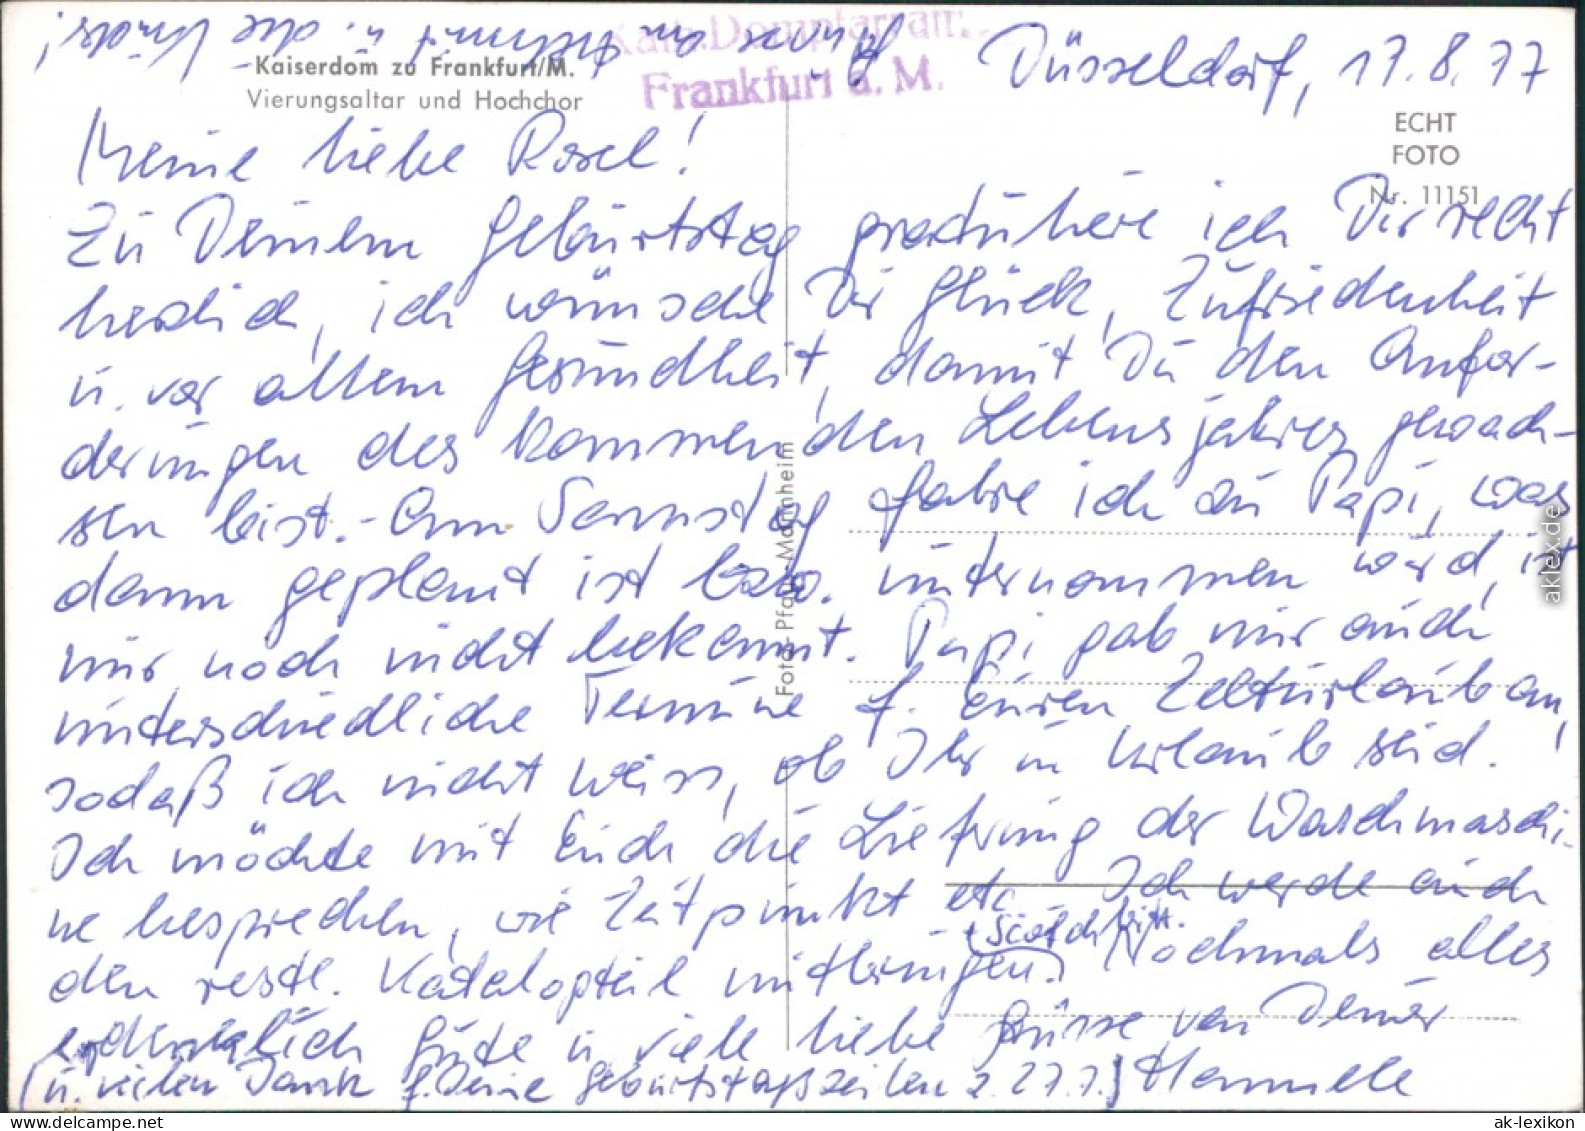 Grüsse an Helmut u. die Kids!
Kath. Dompfarramt
Frankfurt a. M.
Kaiserdom zu Frankfurt/M.
Vierungsaltar und Hochchor
Düsseldorf, 17.8.77
ECHT
FOTO
Nr. 11151
Meine liebe Rosel!
Zu Deinem Geburtstag gratuliere ich Dir recht
herzlich, ich wünsche Dir Glück, Zufriedenheit
u. vor allem Gesundheit, damit Du den Anfor-
derungen des kommenden Lebensjahres gewach-
sen bist. - Am Samstag fahre ich zu Papi, was
dann geplant ist bzw. unternommen wird, ist
mir noch nicht bekannt. Papi gab mir auch
unterschiedliche Termine f. Euren Zelturlaub an,
sodaß ich nicht weiss, ob Ihr in Urlaub seid.
Ich möchte mit Euch die Lieferung der Waschmaschi-
ne besprechen, wie Zeitpunkt etc. Ich werde auch
den restl. Katalogteil mitbringen. Nochmals alles
+ Scotch Britt.
erdenklich Gute u. viele liebe Grüsse von Deiner
(u. vielen Dank f. Deine Geburtstagszeilen z. 27.7.) Hannele
Foto: Pfau, Mannheim
aklex.de
ak-lexikon